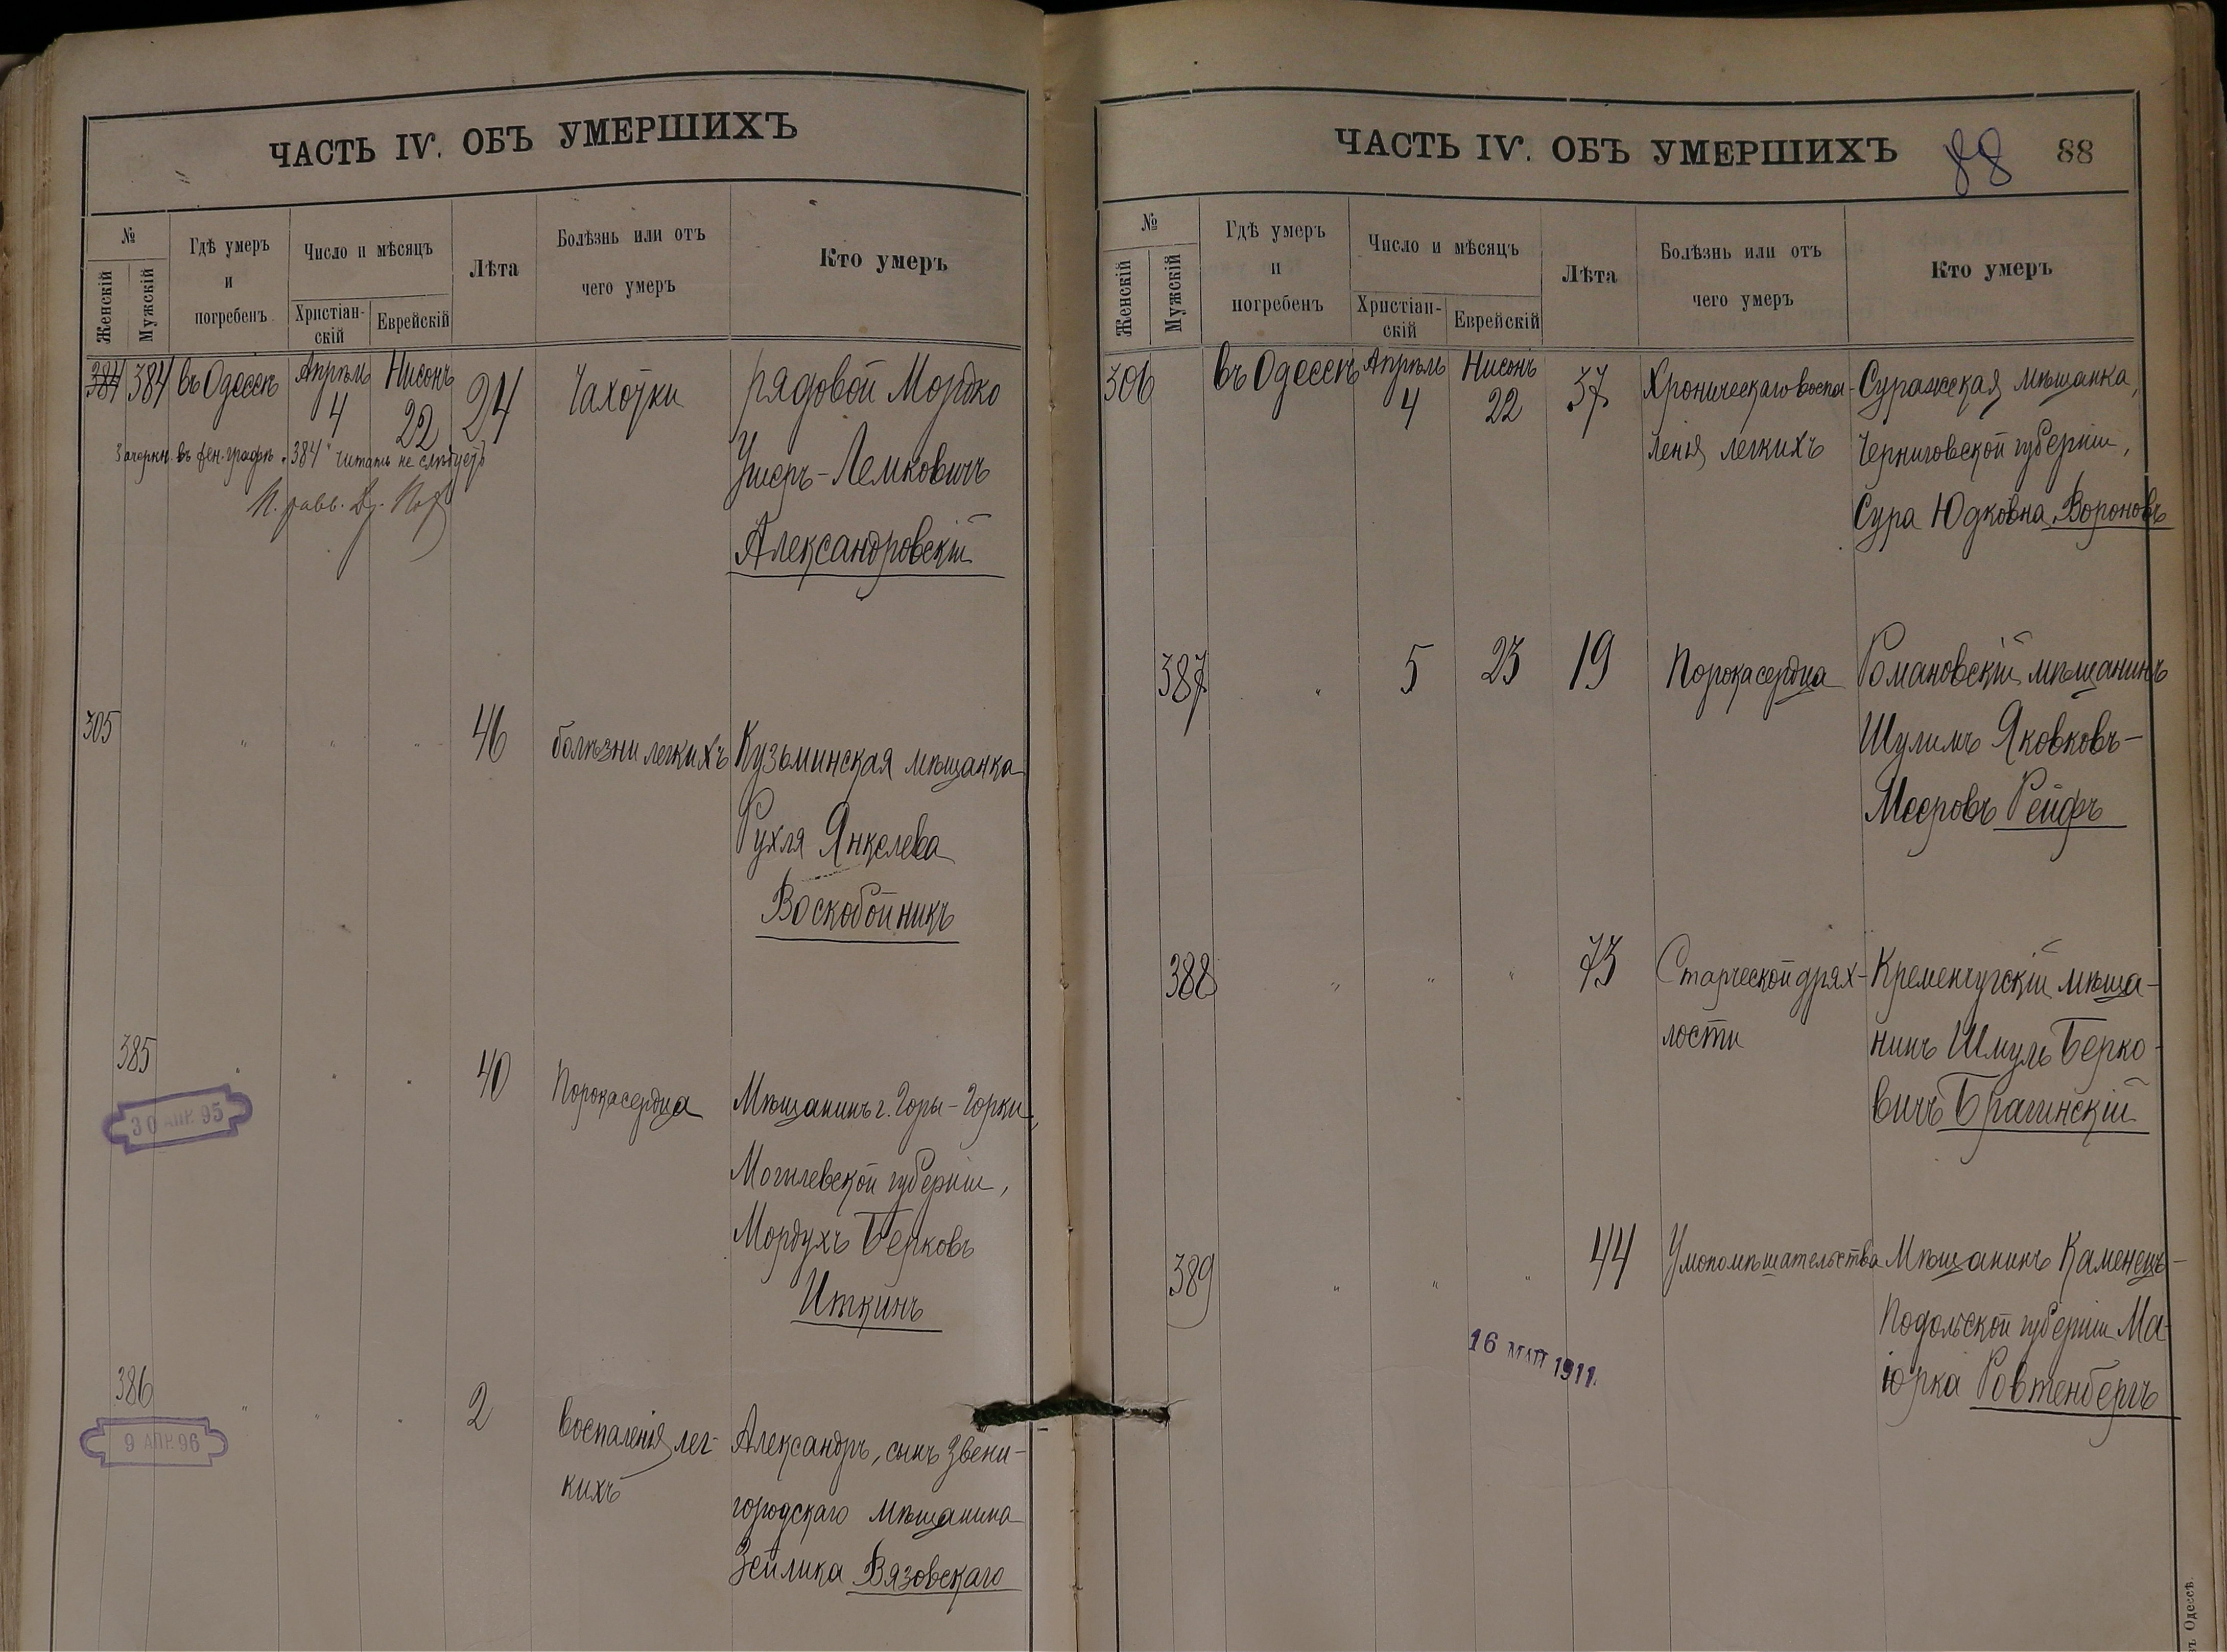 ЧАСТЬ IV. ОБЪ УМЕРШИХЪ
№
Женскій
Мужскій
Гдѣ умеръ
и
погребенъ
Число и мѣсяцъ
Христіан-
скій
Еврейскій
Лѣта
Болѣзнь или отъ
чего умеръ
Кто умеръ
384 384 въ Одессѣ Апрѣль 4 Нисонъ 22 24 Чахотки рядовой Мордко
Ушеръ-Лемковичъ
Александровскій
Зачеркн. въ жен. графѣ „384" читать не слѣдуетъ
305 " " " 46 болѣзни легкихъ Кузьминская мѣщанка
Рухля Янкелева
Воскобойникъ
385 " " " 40 Порока сердца Мѣщанинъ г. Горы-Горки,
Могилевской губерніи,
Мордухъ Берковъ
Иткинъ
30 АПР. 95
386 " " " 2 воспаленія лег- Александръ, сынъ Звени-
кихъ городскаго мѣщанина
Зейлика Вязовскаго
9 АПР. 96
ЧАСТЬ IV. ОБЪ УМЕРШИХЪ 88 88
№
Женскій
Мужскій
Гдѣ умеръ
и
погребенъ
Число и мѣсяцъ
Христіан-
скій
Еврейскій
Лѣта
Болѣзнь или отъ
чего умеръ
Кто умеръ
306 въ Одессѣ Апрѣль 4 Нисонъ 22 37 Хроническаго воспа- Суражская мѣщанка,
ленія легкихъ Черниговской губерніи,
Сура Юдковна Вороновъ
387 " 5 23 19 Порока сердца Романовскій мѣщанинъ
Шулимъ Яковковъ-
Мееровъ Рейфъ
388 " " " 73 Старческой дрях- Кременчугскій мѣща-
лости нинъ Шмуль Берко-
вичъ Брагинскій
389 " " " 44 Умопомѣшательства Мѣщанинъ Каменецъ-
Подольской губерніи Ма-
іорка Ровтенбергъ
16 МАЯ 1911.
въ Одессѣ.